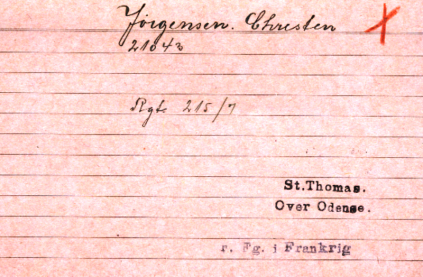 Jörgensen. Chresten
Rgt. 215/7
St.Thomas.
Over Odense.
r. Fg. i Frankrig